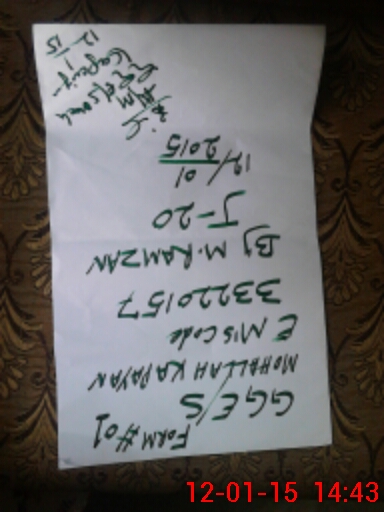 FORM #01
GGE/S
MOHALLAH KAPAYAN
EMIS Code
33220157
By M. RAMZAN
J-20
12/01
2015
12-1-15
12-01-15 14:43